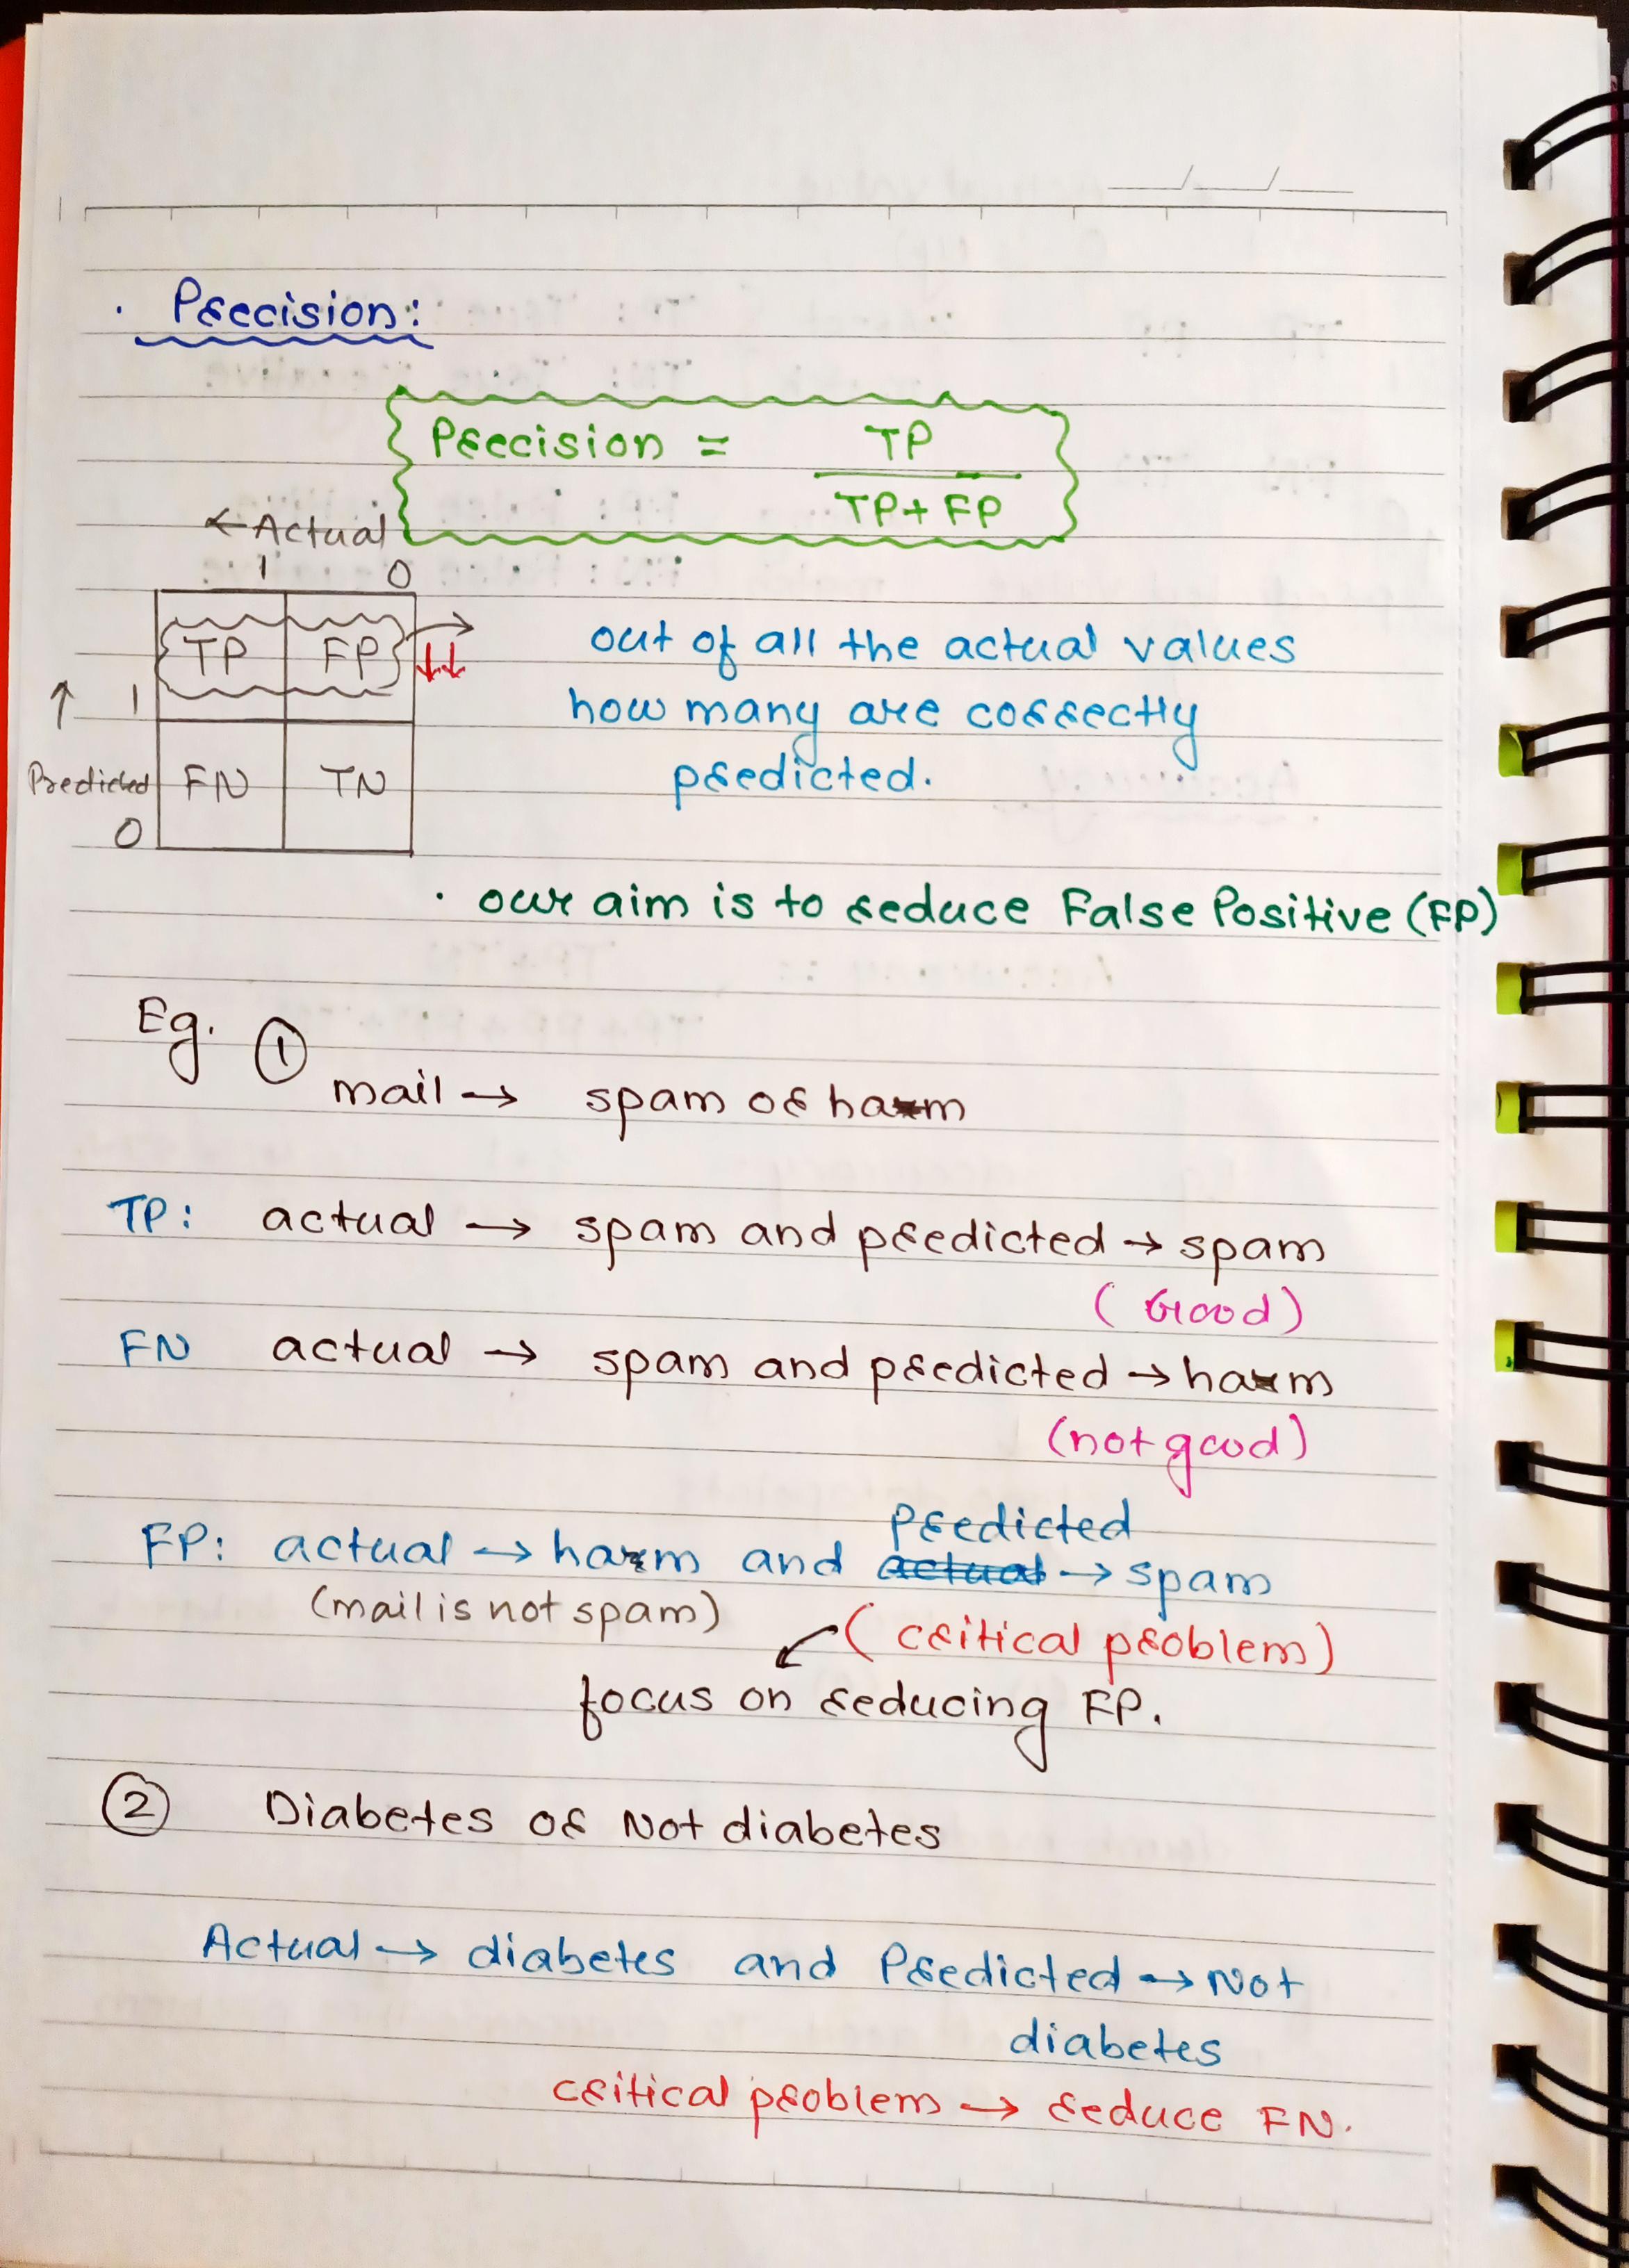 . Precision:
Precision = TP
TP+ FP
←Actual
1 0
TP FP ↓↓
↑ 1
Predicted FN TN
0
out of all the actual values
how many are correctly
predicted.
· our aim is to reduce False Positive (FP)
Eg. ①
mail → spam or ham
TP: actual → spam and predicted → spam
(Good)
FN actual → spam and predicted → ham
(not good)
Predicted
FP: actual → ham and actual → spam
(mail is not spam)
(critical problem)
focus on reducing FP.
② Diabetes or Not diabetes
Actual → diabetes and Predicted → Not
diabetes
critical problem → reduce FN.